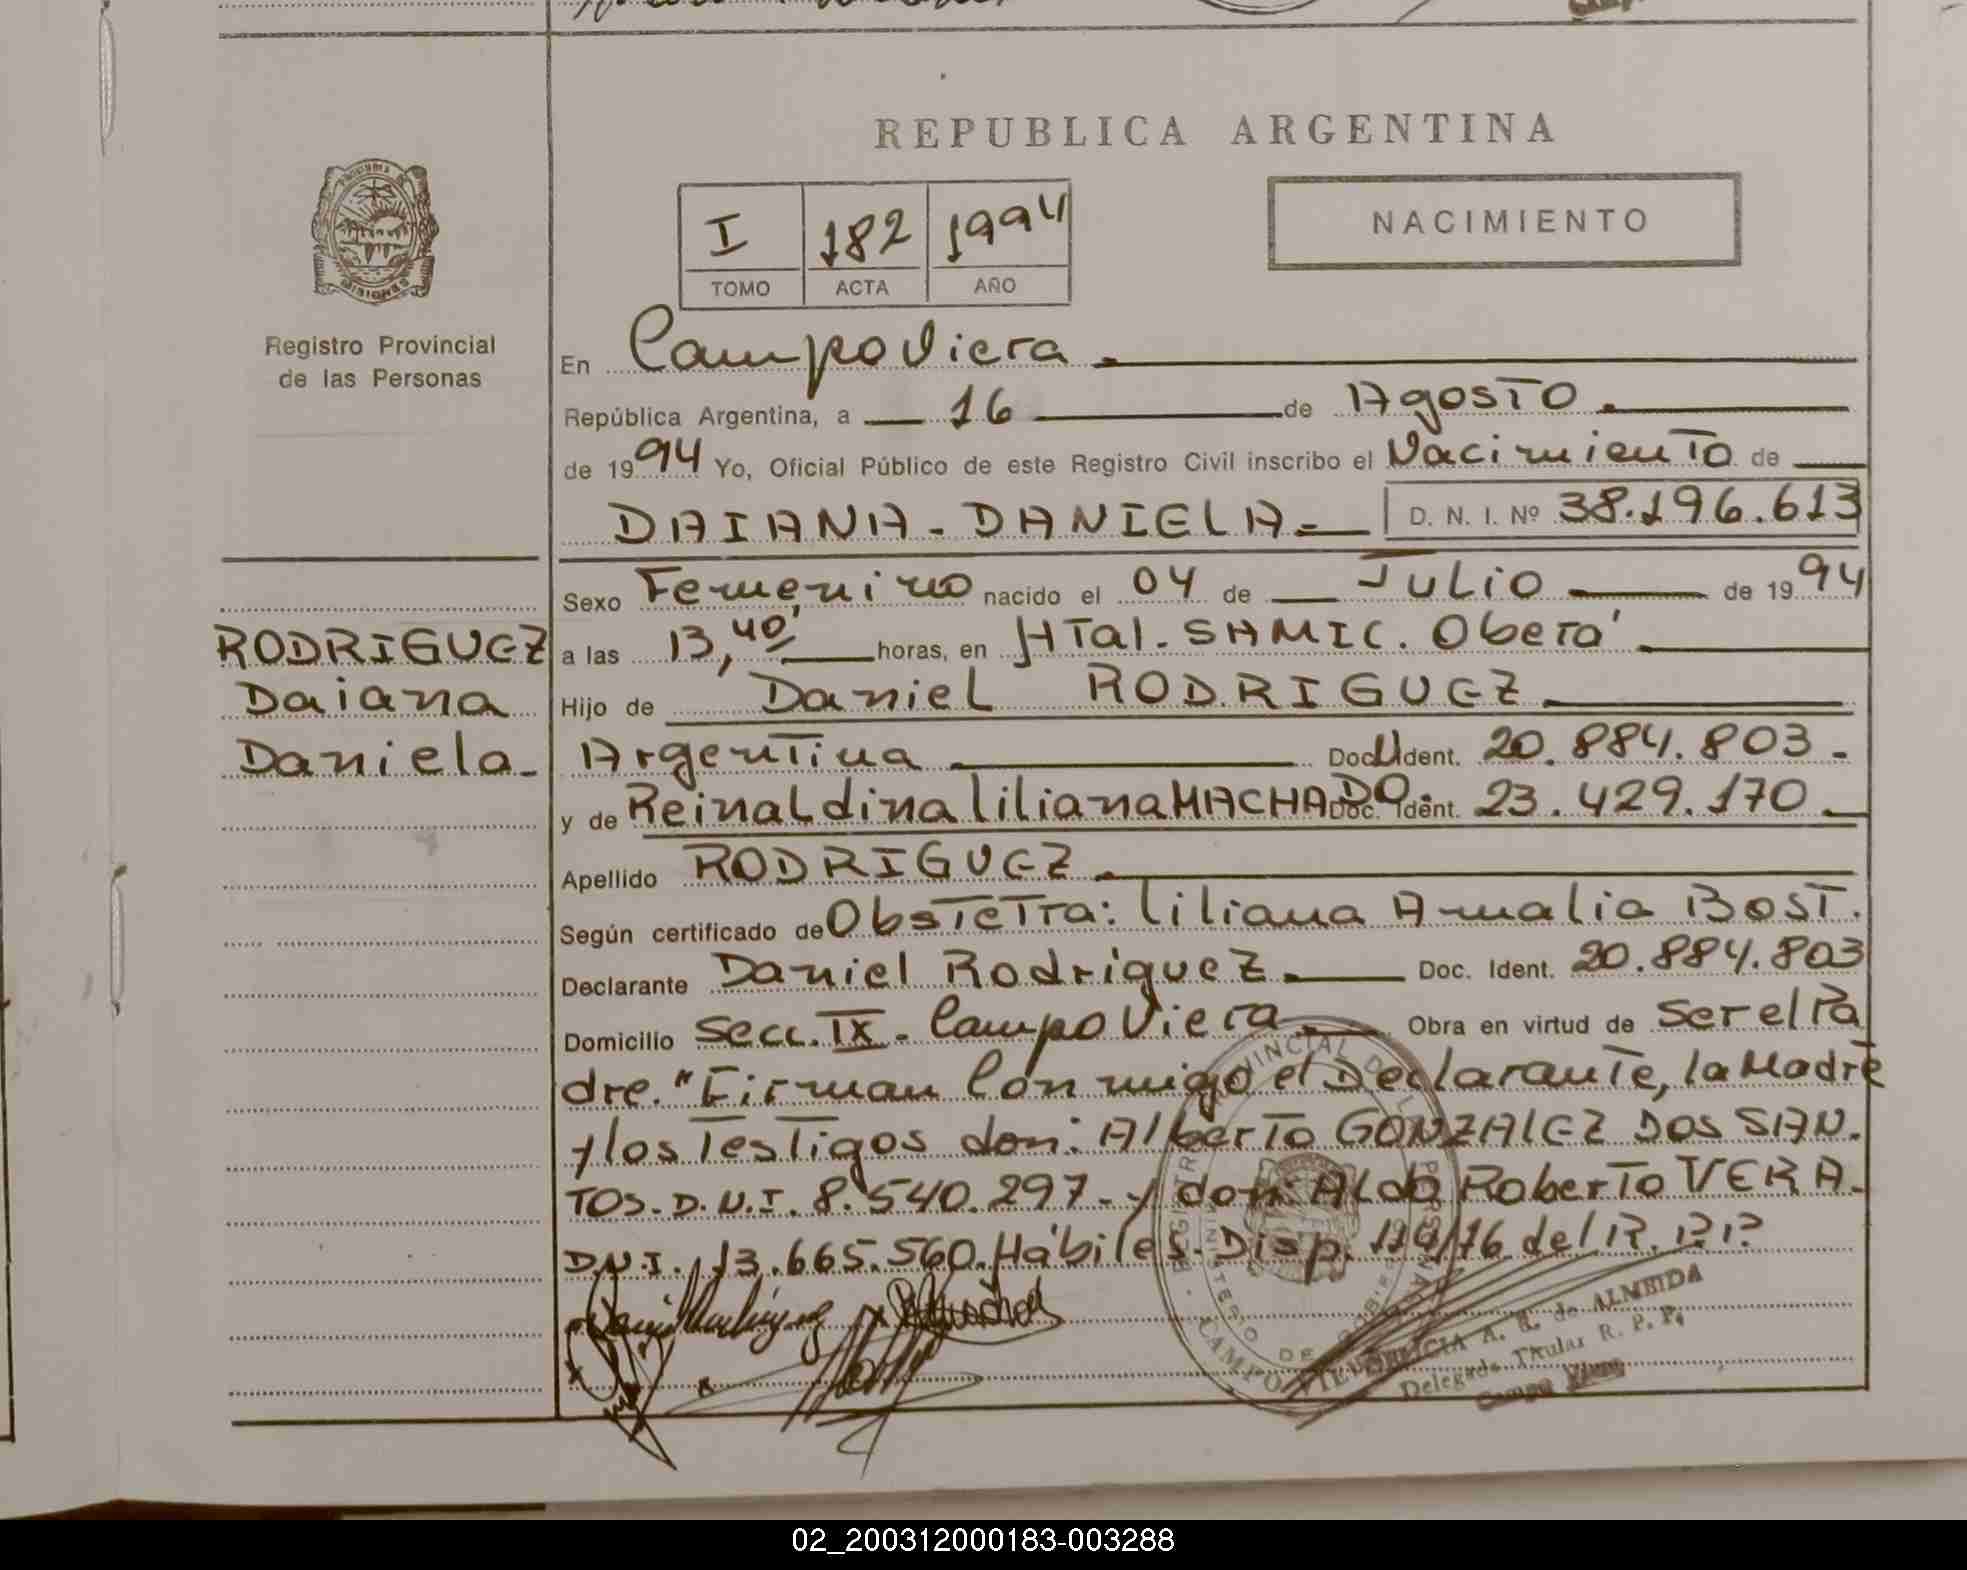 REPUBLICA ARGENTINA
I 182 1994
TOMO ACTA AÑO
NACIMIENTO
Registro Provincial
de las Personas
En Campo Viera.
República Argentina, a 16 de Agosto.
de 1994 Yo, Oficial Público de este Registro Civil inscribo el Nacimiento de
DAIANA - DANIELA = D. N. I. Nº 38.196.613
Sexo Femenino nacido el 04 de Julio de 1994
RODRIGUEZ
Daiana
Daniela
a las 13,40' horas, en HTal. SAMIC. Oberá
Hijo de Daniel RODRIGUEZ.
Argentina Doc. Ident. 20.884.803.
y de Reinaldina liliana MACHADO. Doc. Ident. 23.429.170
Apellido RODRIGUEZ.
Según certificado de Obstetra: liliana Amalia Bost.
Declarante Daniel Rodriguez. Doc. Ident. 20.884.803
Domicilio Secc. IX - Campo Viera Obra en virtud de ser el Pa
dre." Firman Conmigo el Declarante, la Madre
y los Testigos don: Alberto GONZALEZ DOS SAN.
TOS. D.N.I. 8.540.297 - y don: Aldo Roberto VERA.
D.N.I. 13.665.560. Hábiles. Disp. 119/76 del R.P.P
A. G. de ALMEIDA
Delegada Titular R. P. P.
Campo Viera
02_200312000183-003288